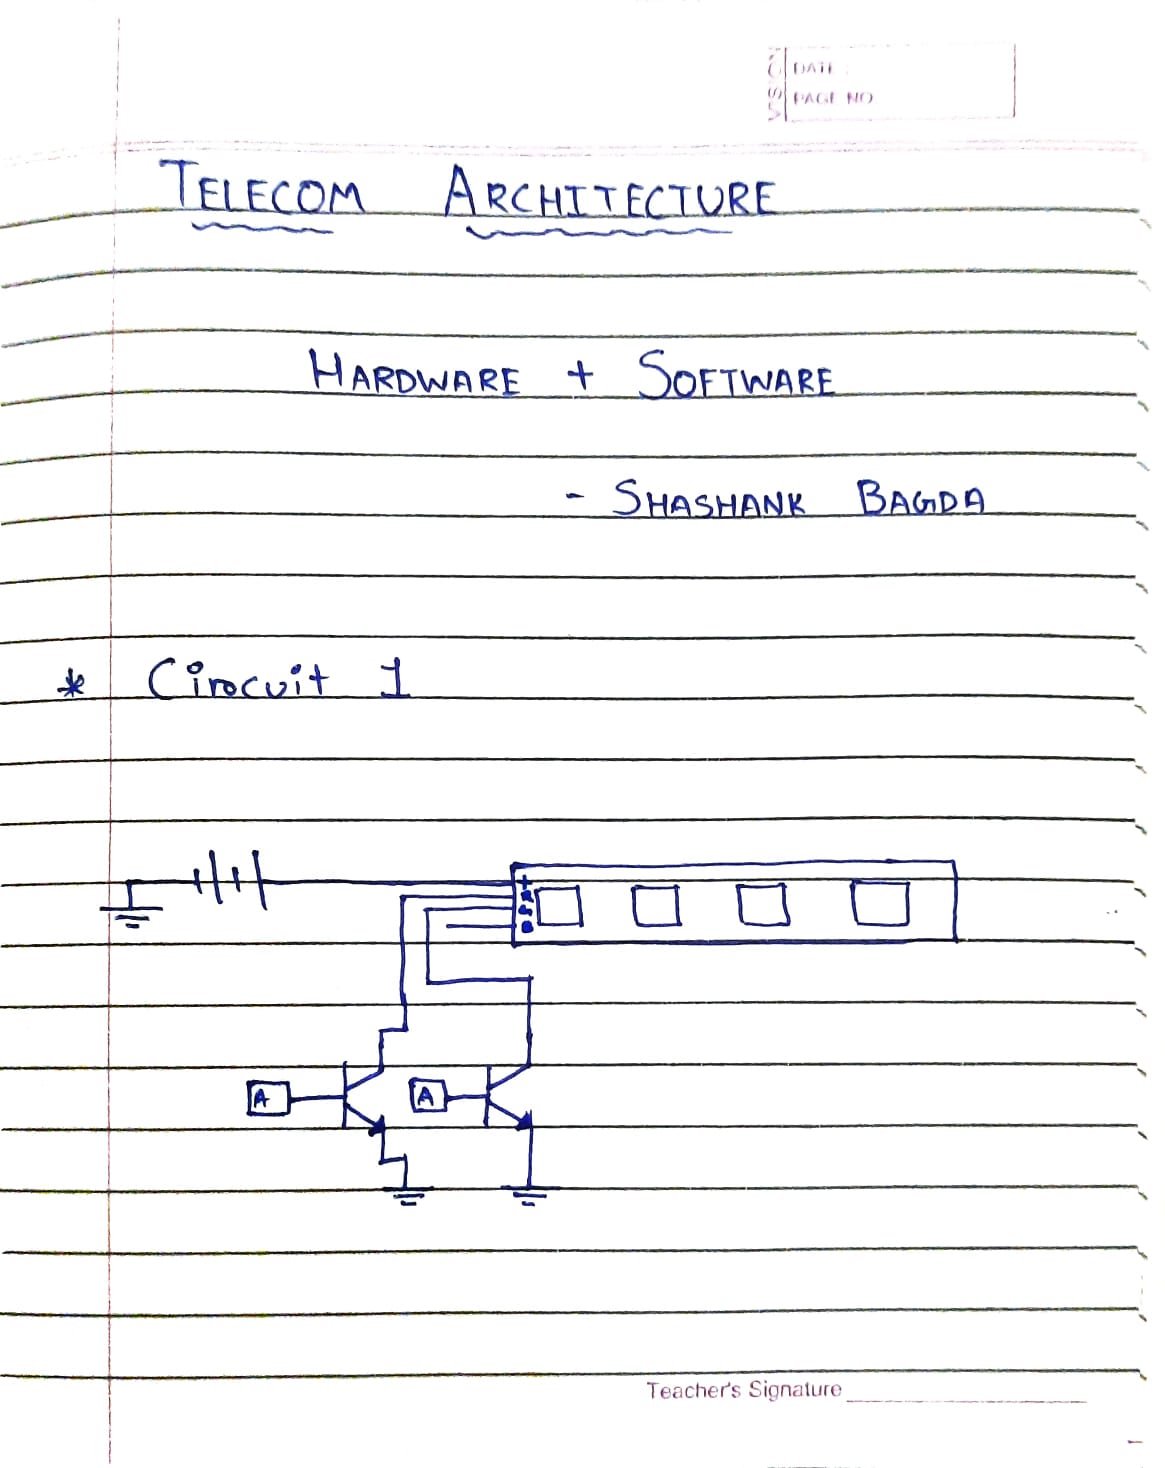 DATE
PAGE NO
TELECOM ARCHITECTURE
HARDWARE + SOFTWARE
- SHASHANK BAGDA
* Circuit 1
+
A A
Teacher's Signature